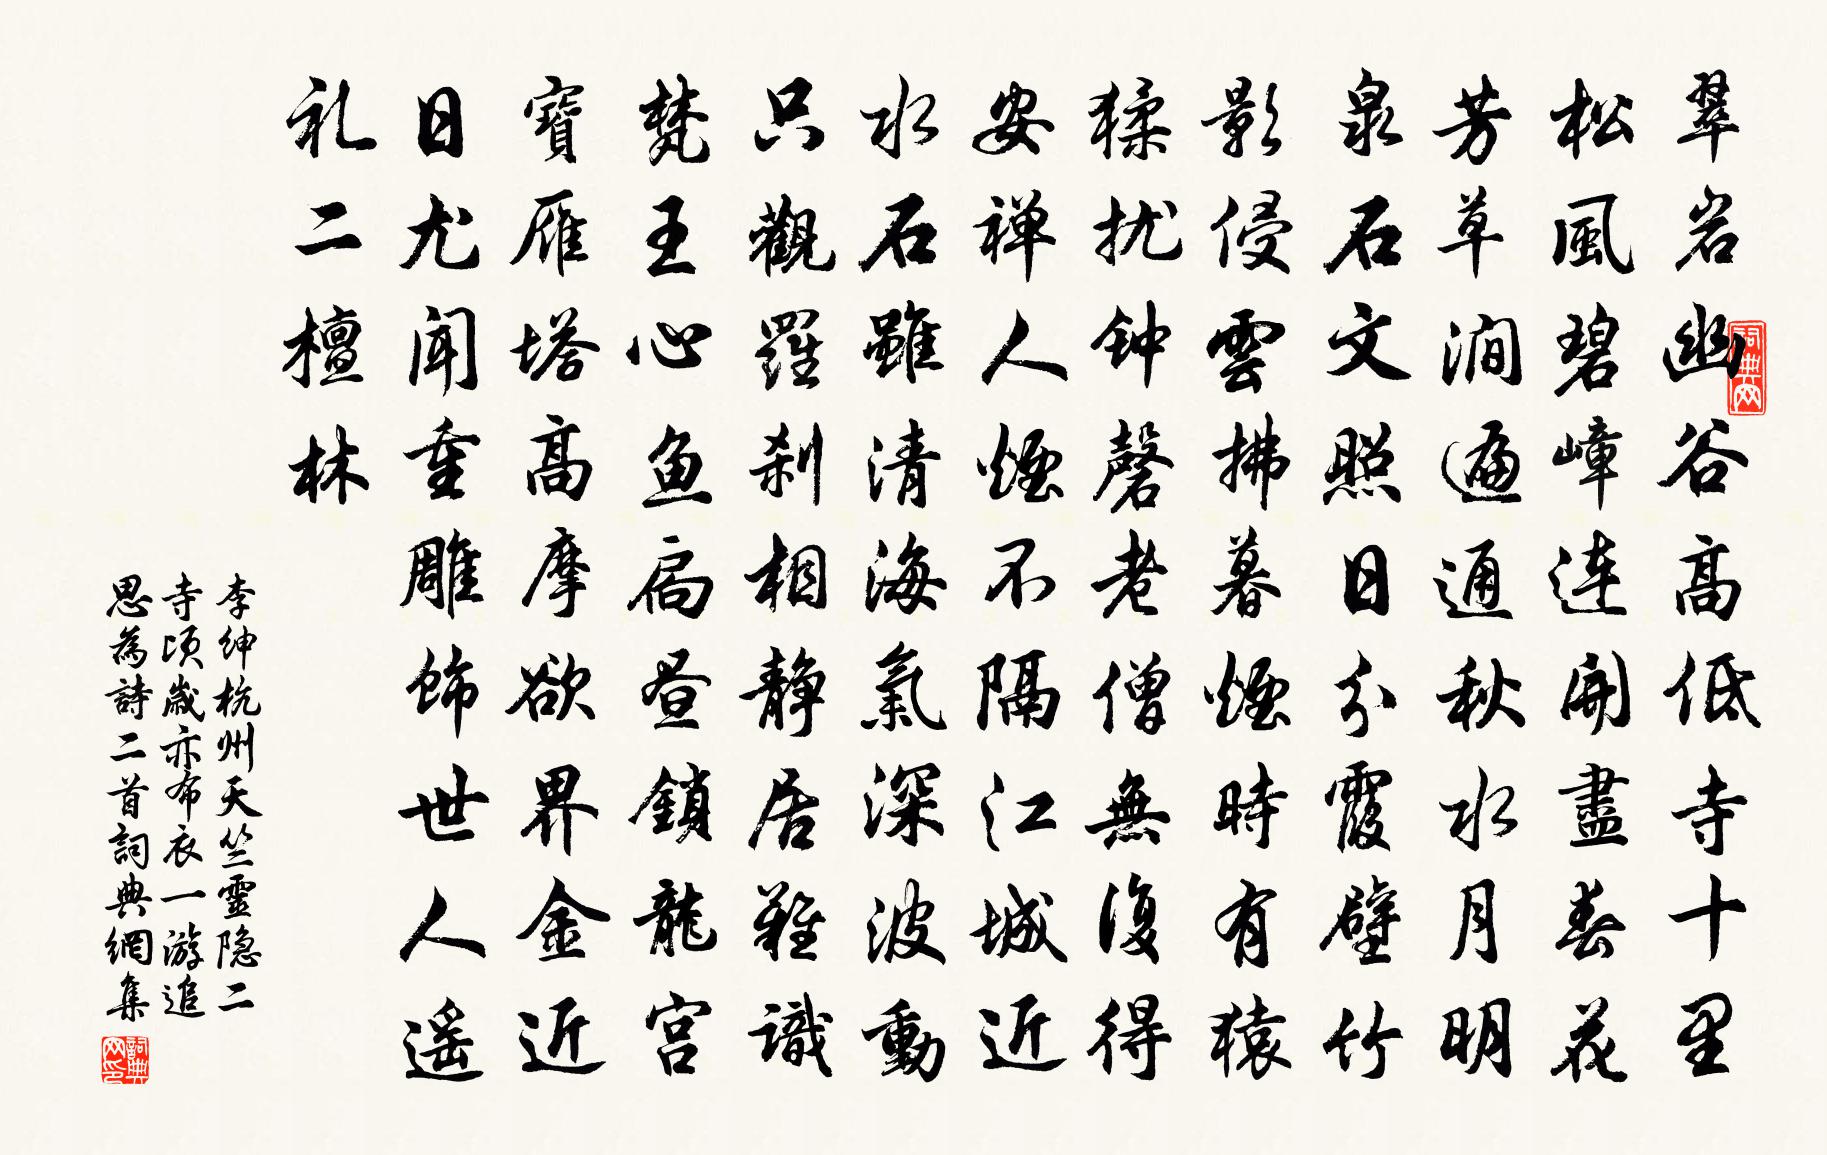 翠岩幽谷高低寺十里
松風碧嶂連開盡春花
芳草澗遍通秋水月明
泉石文照日分霞壁竹
影侵雲拂暮煙時有猿
猱扰钟磬老僧無復得
安禅人煙不隔江城近
水石雖清海氣深波動
只觀羅刹相静居難識
梵王心魚扃昼鎖龍宮
寶雁塔高摩欲界金近
日尤聞重雕飾世人遥
礼二檀林
李绅杭州天竺靈隐二
寺頃歲亦布衣一游追
思為詩二首詞典網集
词典网
詞典网印